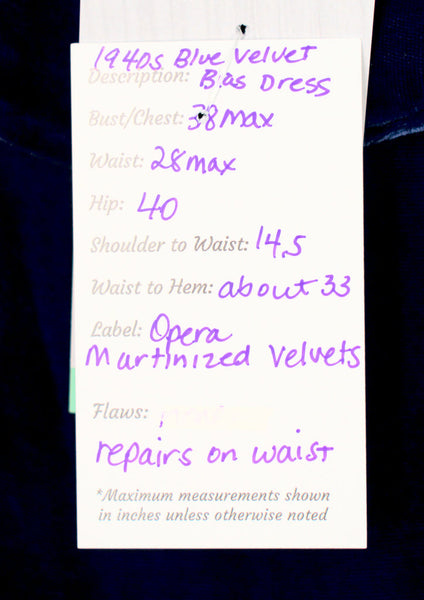 1940s Blue Velvet
Description: Bias Dress
Bust/Chest: 38 max
Waist: 28 max
Hip: 40
Shoulder to Waist: 14.5
Waist to Hem: about 33
Label: Opera
Martinized Velvets
Flaws:
repairs on waist
*Maximum measurements shown
in inches unless otherwise noted